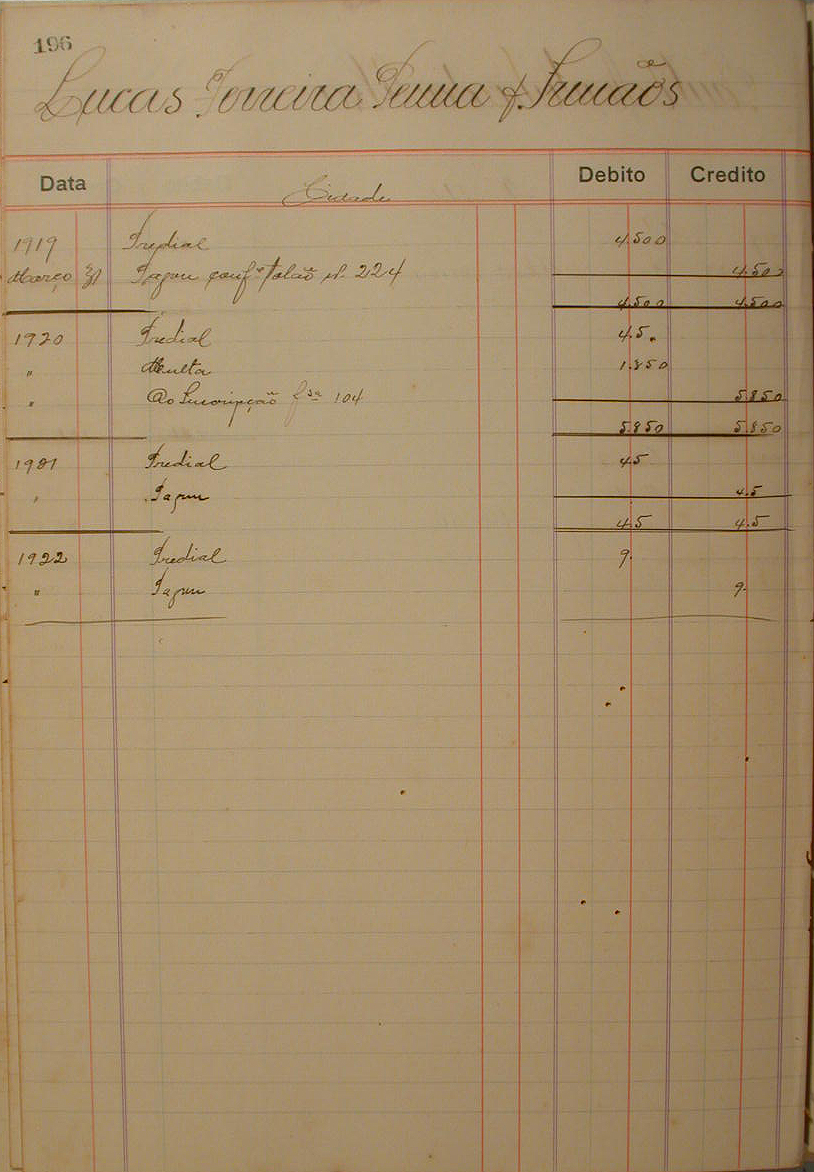 196
Lucas Ferreira Penna & Irmãos
Data Cidade Debito Credito
1919 Predial 4.500
Março 31 Pagou conf.e talão n. 224 4.500
4.500 4.500
1920 Predial 4.5
" Multa 1.350
" @ Inscripção fsa 104 5.850
5.850 5.850
1921 Predial 4.5
" Pagou 4.5
4.5 4.5
1922 Predial 9.
" Pagou 9.